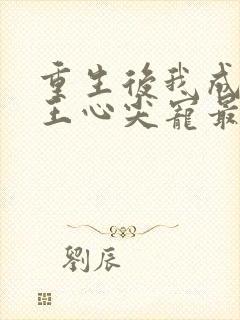 重生後我成
王心尖寵最
劉辰